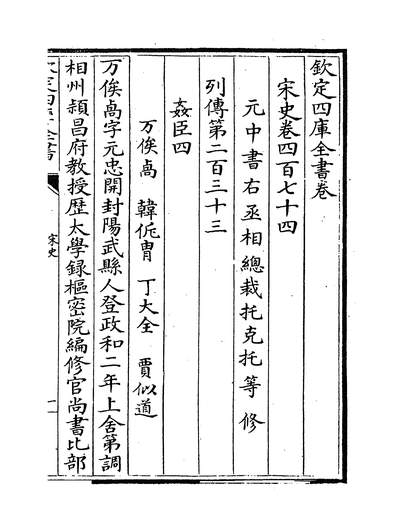 欽定四庫全書卷
宋史卷四百七十四
元中書右丞相總裁托克托等修
列傳第二百三十三
姦臣四
万俟卨　韓侂胄　丁大全　賈似道
万俟卨字元忠開封陽武縣人登政和二年上舍第調
相州頴昌府教授歴太學録樞密院編修官尚書比部
欽定四庫全書
宋史
一